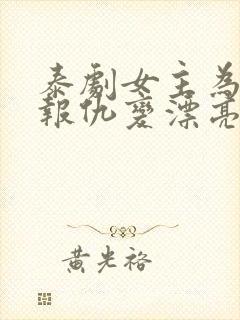 泰劇女主為
報仇變漂亮
黃光裕